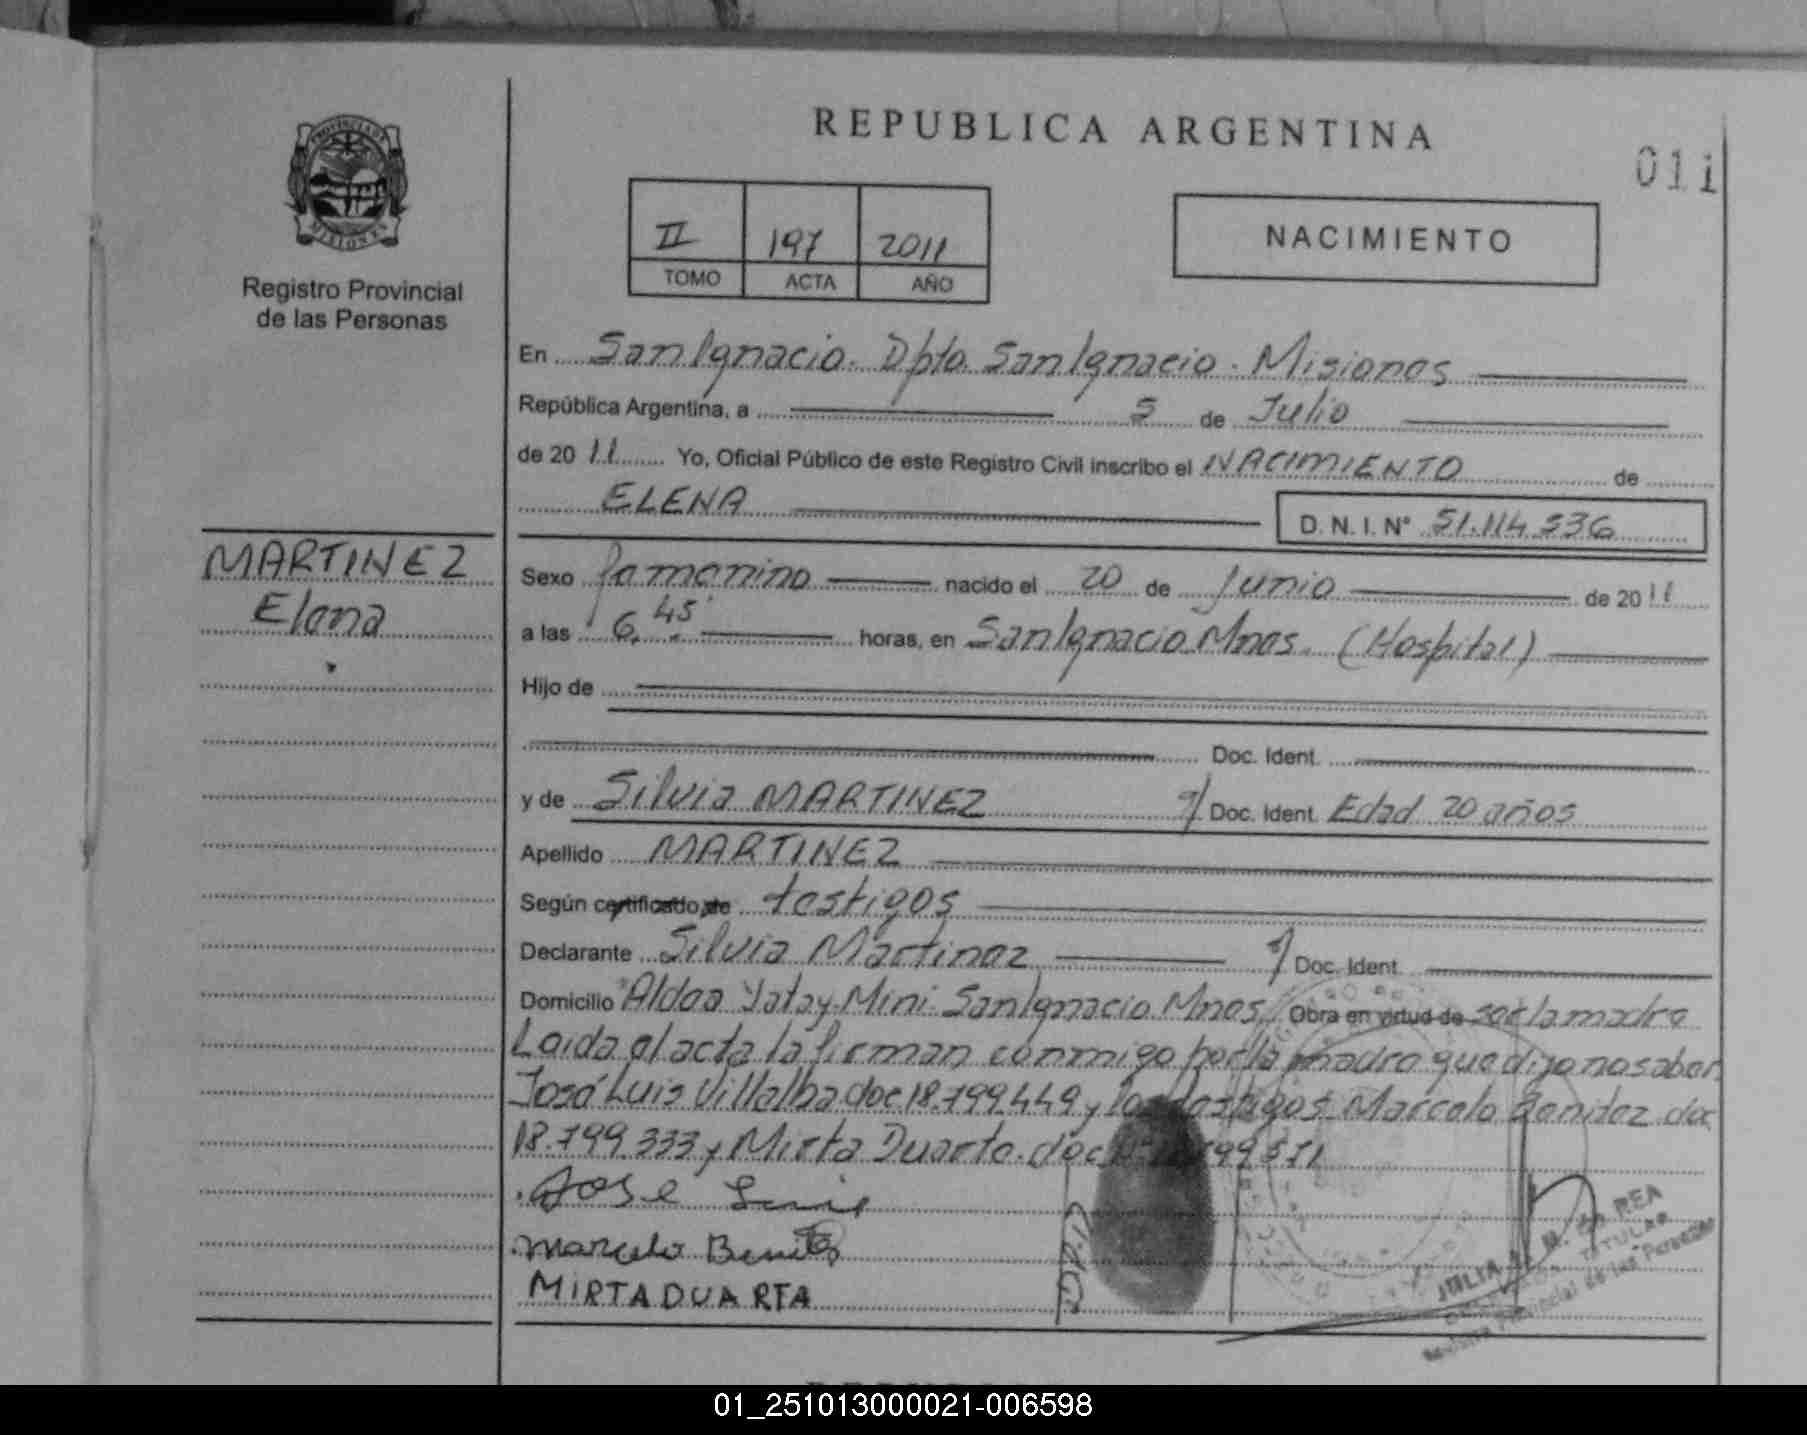 REPUBLICA ARGENTINA
011
PROVINCIA DE MISIONES
Registro Provincial
de las Personas
II 197 2011
TOMO ACTA AÑO
NACIMIENTO
En San Ignacio. Dpto. San Ignacio. Misiones
República Argentina, a 5 de Julio
de 20 11 Yo, Oficial Público de este Registro Civil inscribo el NACIMIENTO de
ELENA D. N. I. N° 51.114.536
MARTINEZ
Elena
Sexo femenino nacido el 20 de Junio de 20 11
a las 6,45 horas, en San Ignacio Mnes. (Hospital)
Hijo de
Doc. Ident.
y de Silvia MARTINEZ Doc. Ident. Edad 20 años
Apellido MARTINEZ
Según certificado de testigos
Declarante Silvia Martinez Doc. Ident.
Domicilio Aldea Yatay-Mini San Ignacio Mnes. Obra en virtud de ser la madre
Leida el acta la firman conmigo por la madre que dijo no saber
José Luis Villalba doc 18.799.449 y los testigos Marcelo Benitez doc
18.799.333 y Mirta Duarte. doc
Jose Luis
Marcelo Benites
MIRTA DUARTA
JULIA REA
TITULAR
Provincial de las Personas
01_251013000021-006598